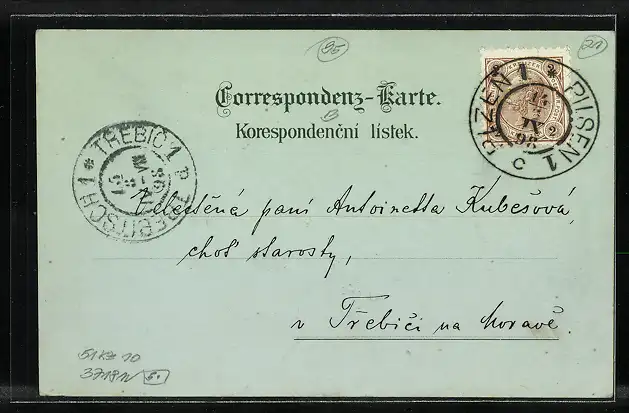 95
21
Correspondenz-Karte.
Korespondenční lístek.
PLZEŇ 1 * PILSEN 1
2
TŘEBÍČ 1 * TREBITSCH 1 *
Velectěná paní Antoinetta Kubešová,
choť starosty,
v Třebíči na Moravě.